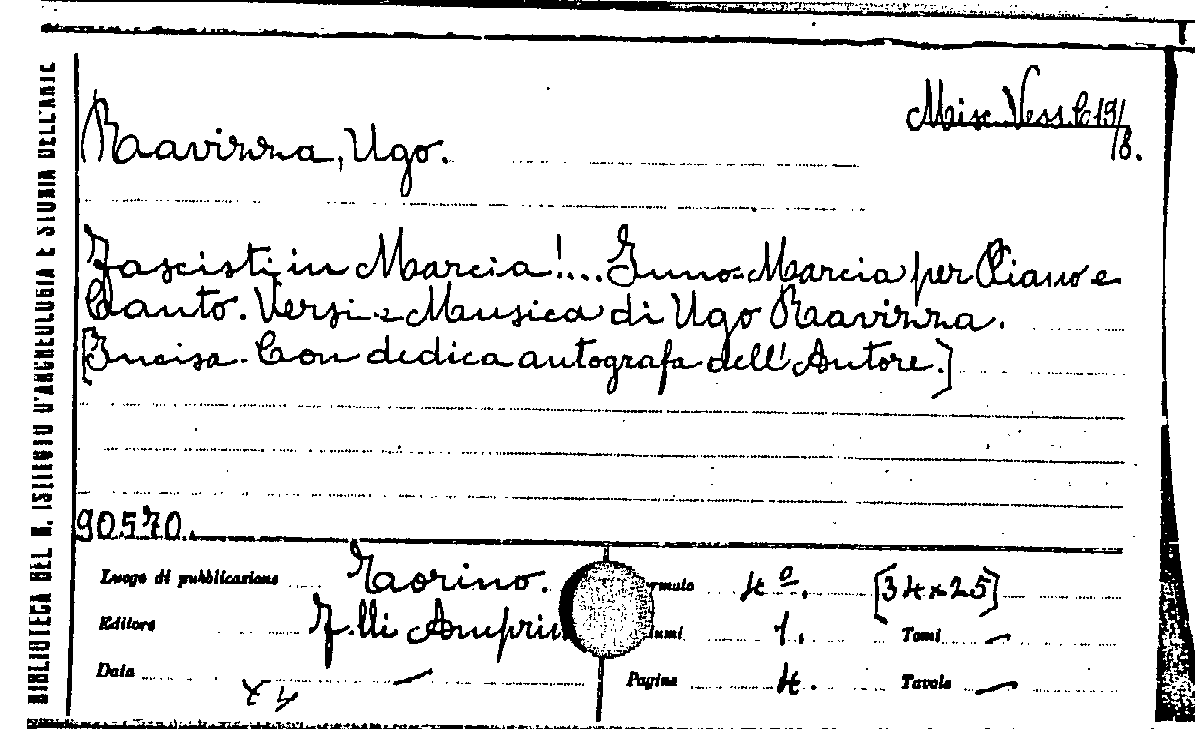 BIBLIOTECA DEL R. ISTITUTO D'ARCHEOLOGIA E STORIA DELL'ARTE
Misc. Vess. C 19/
8.
Ravizza, Ugo.
Fascisti in Marcia!... Inno-Marcia per Piano e
Canto. Versi e Musica di Ugo Ravizza.
[Incisa. Con dedica autografa dell'Autore.]
90570.
Luogo di pubblicazione Torino. rmato 4º. [34x25]
Editore F.lli Amprim lumi 1. Tomi —
Data — Pagine 4. Tavole —